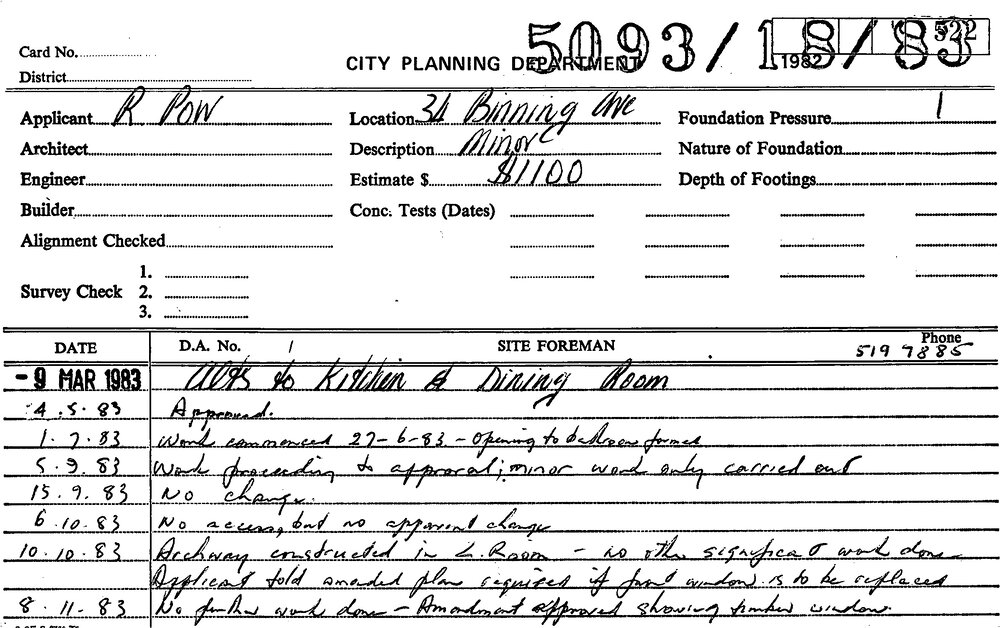 5093/18/83
522
Card No.
District
CITY PLANNING DEPARTMENT 1982
Applicant R Pow
Location 34 Binning Ave
Foundation Pressure 1
Architect
Description Minor C
Nature of Foundation
Engineer
Estimate $ $1100
Depth of Footings
Builder
Conc. Tests (Dates)
Alignment Checked
1.
Survey Check 2.
3.
DATE D.A. No. SITE FOREMAN Phone 519 7885
-9 MAR 1983 Alts to Kitchen & Dining Room
4.5.83 Approved.
1.7.83 Work commenced 27-6-83 - opening to bedroom formed
5.9.83 Work proceeding to approval; minor work only carried out
15.9.83 No change.
6.10.83 No access, but no apparent change
10.10.83 Archway constructed in L. Room - no other significant work done.
Applicant told amended plan required if front window is to be replaced
8.11.83 No further work done - Amendment approved showing timber window.